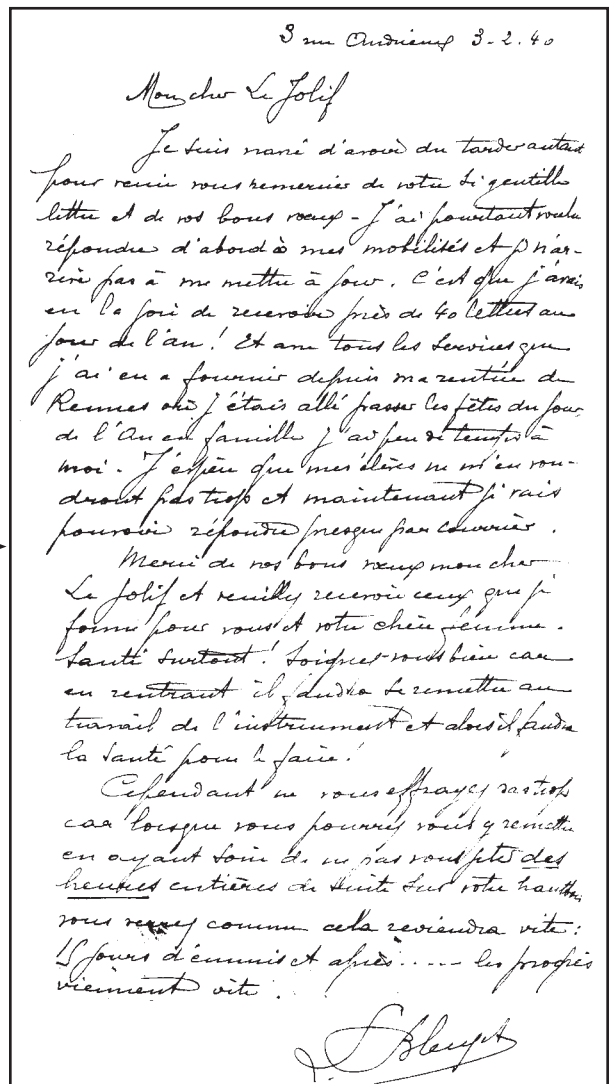 3 rue Andrieux 3-2.40
Mon cher Le Jolif
Je suis navré d'avoir du tarder autant
pour venir vous remercier de votre si gentille
lettre et de vos bons vœux - J'ai pourtant voulu
répondre d'abord à mes mobilisés et n'ar-
rive pas à me mettre à jour. C'est que j'avais
eu la joie de recevoir près de 40 lettres au
jour de l'an! Et avec tous les services que
j'ai eu a fournir depuis ma rentrée de
Rennes où j'étais allé passer les fêtes du jour
de l'An en famille j'ai peu de temps à
moi. J'espère que mes élèves ne m'en vou-
dront pas trop et maintenant je vais
pouvoir répondre presque par courrier.
Merci de vos bons vœux mon cher
Le Jolif et veuillez recevoir ceux que je
forme pour vous et votre chère femme.
Santé surtout! Soignez-vous bien car
en rentrant il faudra se remettre au
travail de l'instrument et alors il faudra
la santé pour le faire!
Cependant ne vous effrayez pas trop
car lorsque vous pourrez vous y remettre
en ayant soin de ne pas vous des
heures entières de suite sur votre hautbois
vous verrez comme cela reviendra vite:
15 jours d'ennuis et après ..... les progrès
viennent vite.
L Bleuzet